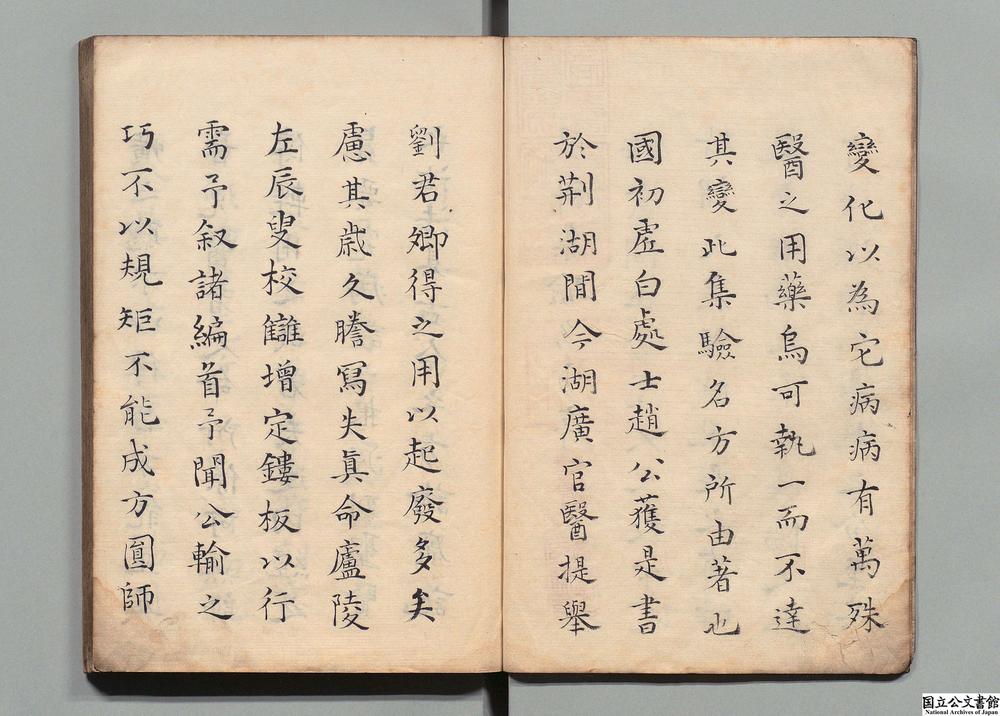 變化以為它病病有萬殊
醫之用藥烏可執一而不達
其變此集驗名方所由著也
國初虛白處士趙公獲是書
於荆湖間今湖廣官醫提舉
劉君卿得之用以起廢多矣
慮其歲久謄寫失真命廬陵
左辰叟校讎增定鏤板以行
需予叙諸編首予聞公輸之
巧不以規矩不能成方圓師
国立公文書館
National Archives of Japan